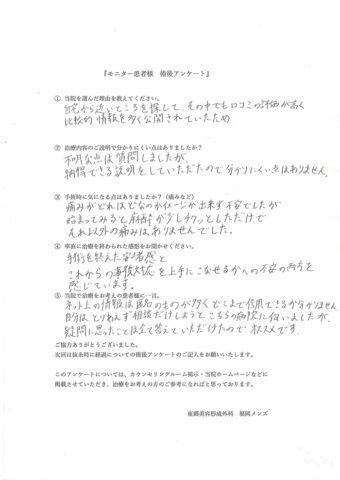 『モニター患者様　術後アンケート』
① 当院を選んだ理由を教えてください。
自宅から近いところを探して、その中でも口コミの評価が高く
比較的情報を多く公開されていたため
② 治療内容のご説明で分かりにくい点はありましたか？
不明な点は質問しましたが、
納得できる説明をしていただたので分かりにくい点はありません。
③ 手術時に気になる点はありましたか？（痛みなど）
痛みがどれほどなのかイメージが出来ず不安でしたが
始まってみると麻酔が少しチクッとしただけで
それ以外の痛みはありませんでした。
④ 率直に治療を終わられた感想をお聞かせください。
手術を終えた安堵感と
これからの事後対応を上手にこなせるかへの不安の両方を
感じています。
⑤ 当院で治療をお考えの患者様に一言。
ネット上の情報は匿名のものが多くどこまで信用できるか分かりません。
自分は、とりあえず相談だけしようと、こちらの病院に伺いましたが、
疑問に思ったことは全て答えていただけたので、オススメです。
ご協力ありがとうございました。
次回は抜糸時に経過についての術後アンケートのご記入をお願いいたします。
このアンケートについては、カウンセリングルーム掲示・当院ホームページなどに
掲載させていただき、治療をお考えの方のご参考になればと思っております。
東郷美容形成外科　福岡メンズ